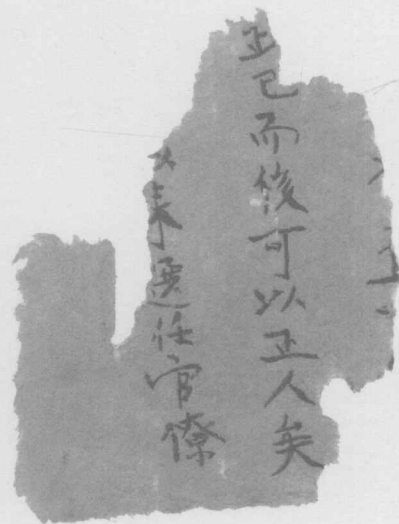 正己而後可以正人矣
來選任官僚